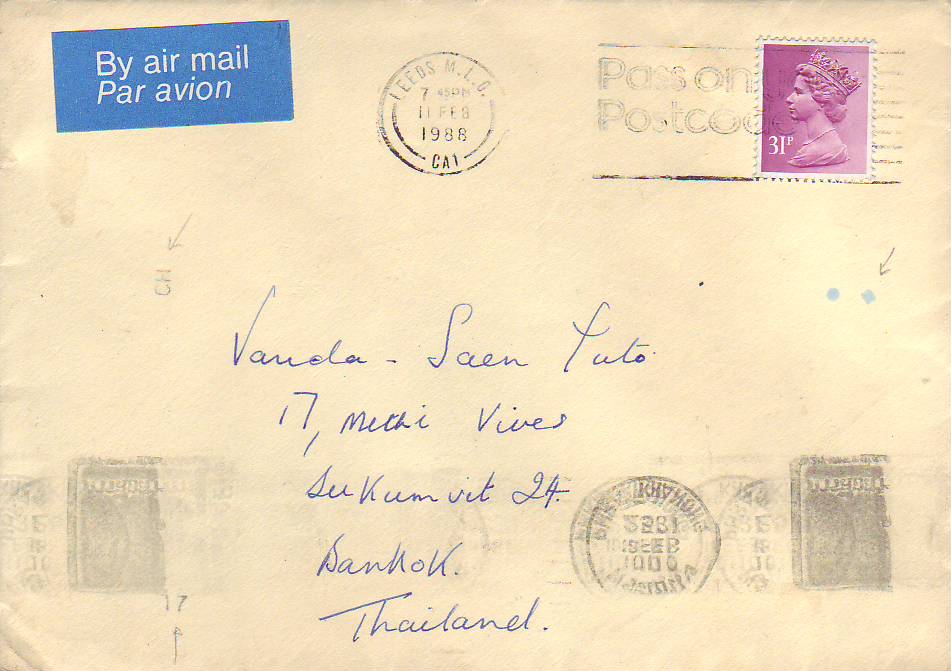 By air mail
Par avion
LEEDS M.L.O.
7 45PM
11 FEB
1988
CA1
Pass on
Postcode
31P
CH
Vanda - Saen Yuto
17, Methi Vives
Sukumvit 24.
Bankok.
Thailand.
2531
FEB
17